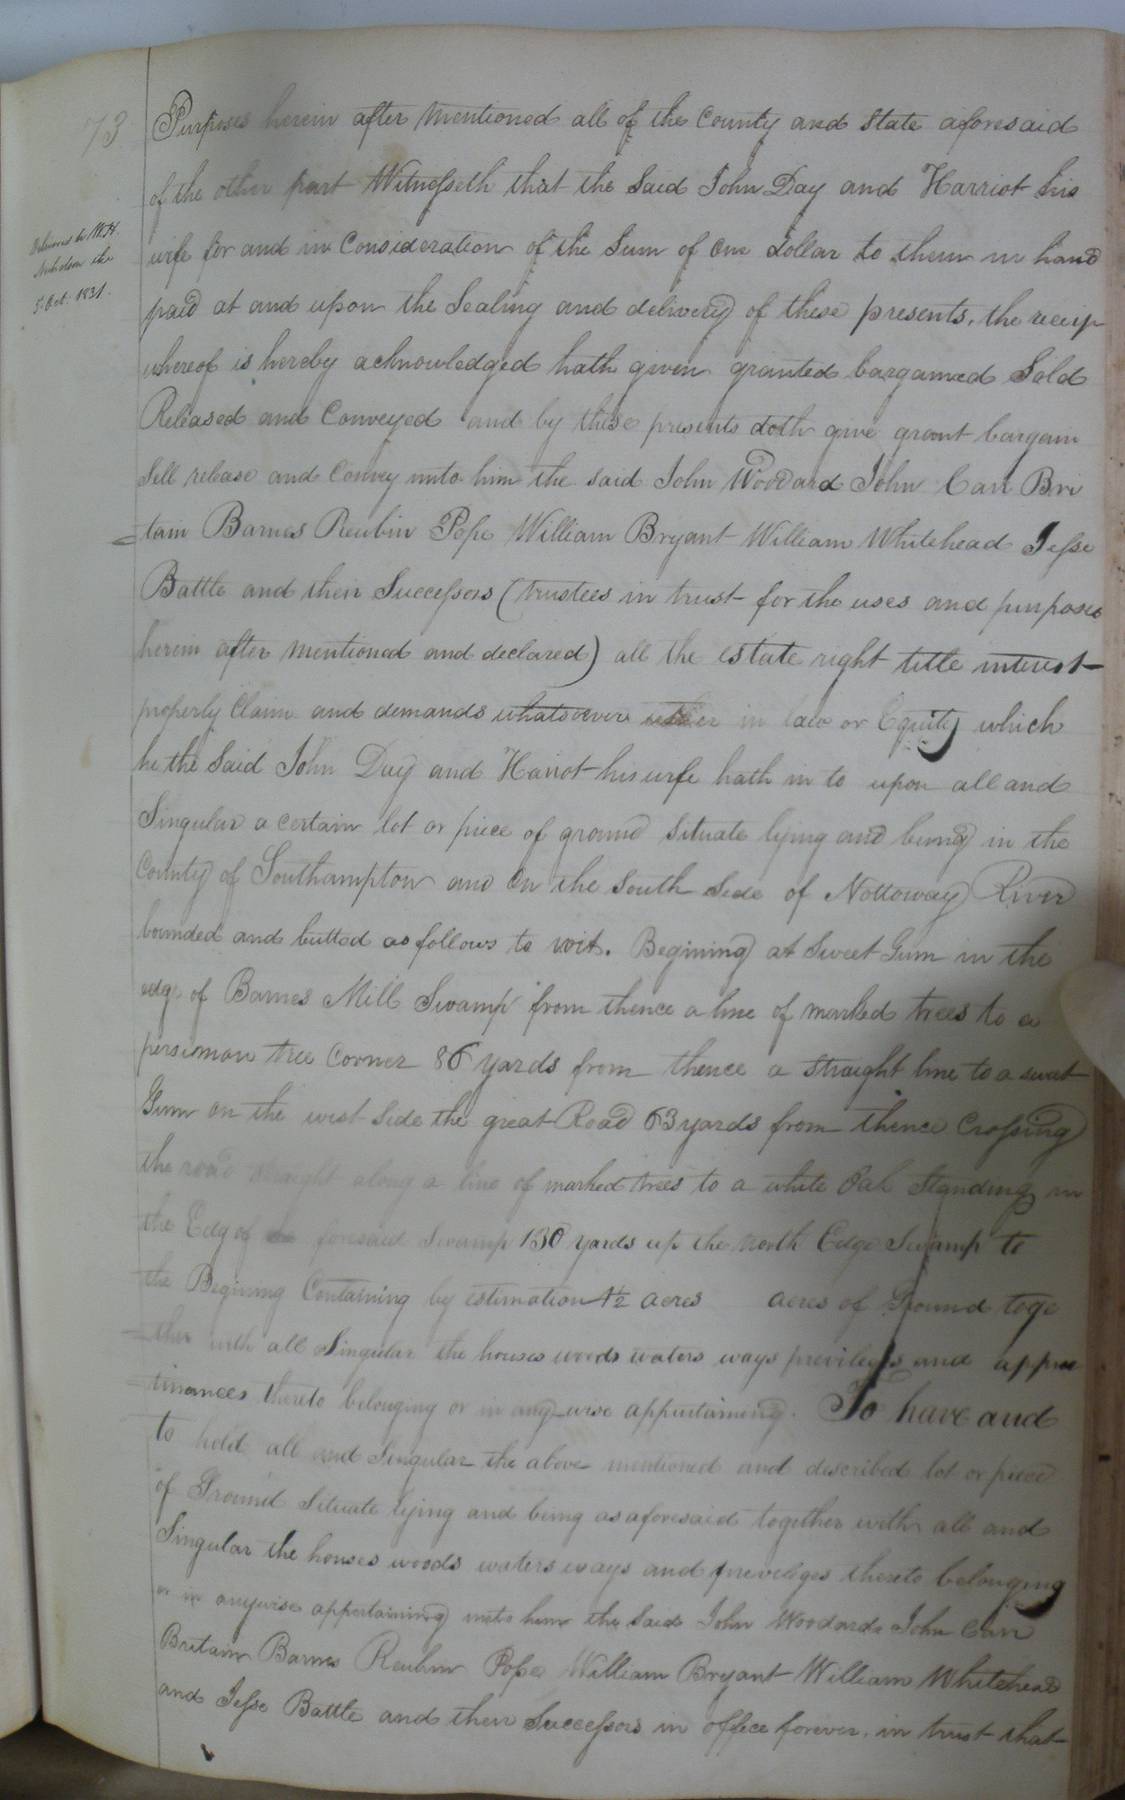 73
Purposes herein after mentioned all of the County and State aforesaid
of the other part Witnesseth that the Said John Day and Harriot his
wife for and in Consideration of the Sum of One Dollar to them in hand
Delivered to W. H.
Nicholson the
5 Oct. 1831.
paid at and upon the Sealing and delivery of these presents, the receip
whereof is hereby acknowledged hath given granted bargained Sold
Released and Conveyed and by these presents doth give grant bargain
Sell release and Convey unto him the said John Woodard John Carr Bri
=tain Barnes Reubin Pope William Bryant William Whitehead Jesse
Battle and their Successors (trustees in trust for the uses and purposes
herein after mentioned and declared) all the estate right title interest
property Claim and demands whatsoever either in law or Equity which
he the Said John Day and Hariot his wife hath in to upon all and
Singular a certain lot or piece of ground Situate lying and being in the
County of Southampton and On the South Side of Nottoway River
bounded and butted as follows to wit. Begining at Sweet Gum in the
edge of Barnes Mill Swamp from thence a line of marked trees to a
persimon tree Corner 86 yards from thence a straight line to a sweet
Gum on the west Side the great Road 63 yards from thence Crossing
the road straight along a line of marked trees to a white Oak Standing in
the Edge of foresaid Swamp 130 yards up the North Edge Swamp to
the Begining Containing by estimation 1½ acres acres of Ground toge
=ther with all Singular the houses woods waters ways privileges and appur
=tinances thereto belonging or in any wise appurtaining. To have and
to hold all and Singular the above mentioned and described lot or piece
of Ground Situate lying and being as aforesaid together with all and
Singular the houses woods waters ways and previleges thereto belonging
or in anywise appertaining unto him the Said John Woodards John Carr
Britain Barnes Reubin Pope William Bryant William Whitehead
and Jesse Battle and their Successors in office forever. in trust that